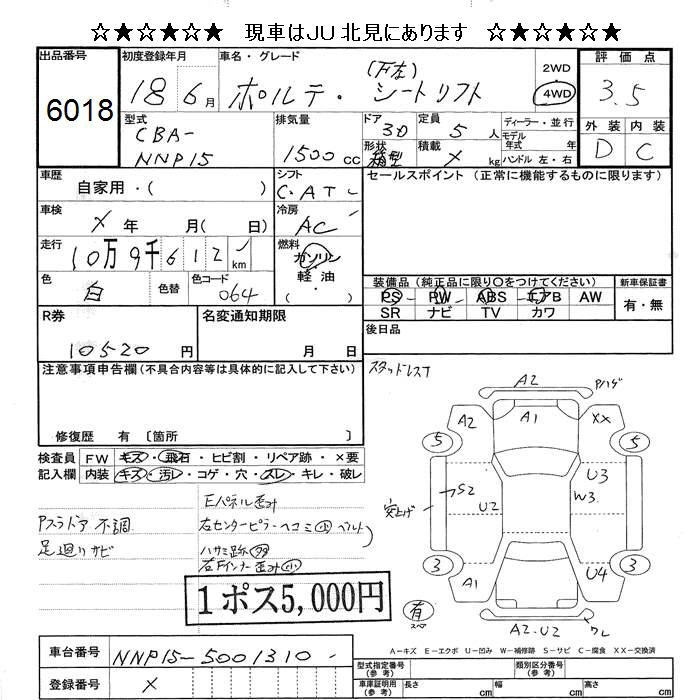 ☆★☆★☆★ 現車はJU北見にあります ☆★☆★☆★
出品番号 初度登録年月 車名・グレード 評価点
6018 18 6月 ポルテ・ (F左) シートリフト 2WD 4WD 3.5
型式 排気量 ドア 定員 ディーラー・並行 外装 内装
CBA-NNP15 1500cc 3D 5人 モデル年式 年 D C
形状 箱型 積載 × kg ハンドル 左・右
車歴 シフト セールスポイント (正常に機能するものに限ります)
自家用・( ) C.AT
車検 冷房
×年 月( 日) AC
走行 燃料
10万9千612km ガソリン・軽油・( )
色 色替 色コード 装備品(純正品に限り○をつけてください) 新車保証書
白 064 PS PW ABS エアB AW 有・無
SR ナビ TV カワ
R券 名変通知期限 後日品
10520円 月 日
注意事項申告欄(不具合内容等は具体的に記入して下さい)
修復歴 有 〔箇所 〕
検査員 FW キズ・飛石・ヒビ割・リペア跡・×要
記入欄 内装 キズ・汚レ・コゲ・穴・スレ・キレ・破レ
スタッドレスT
A2 Pハゲ
A2 A1 XX
5 5
S2 U2 U3
突上げ W3
3 3
A1 U4
有 スペ
A2.U2 ワレ
Eパネル歪み
Pスラドア不調 右センターピラーヘコミ小 ベルト
足廻りサビ ハサミ跡
右Fインナー歪み小
1ポス5,000円
A-キズ E-エクボ U-凹み W-補修跡 S-サビ C-腐食 XX-交換済
車台番号 NNP15-5001310
登録番号 ×
型式指定番号(参考) 類別区分番号(参考)
車庫証明用(参考) 長さ cm 幅 cm 高さ cm